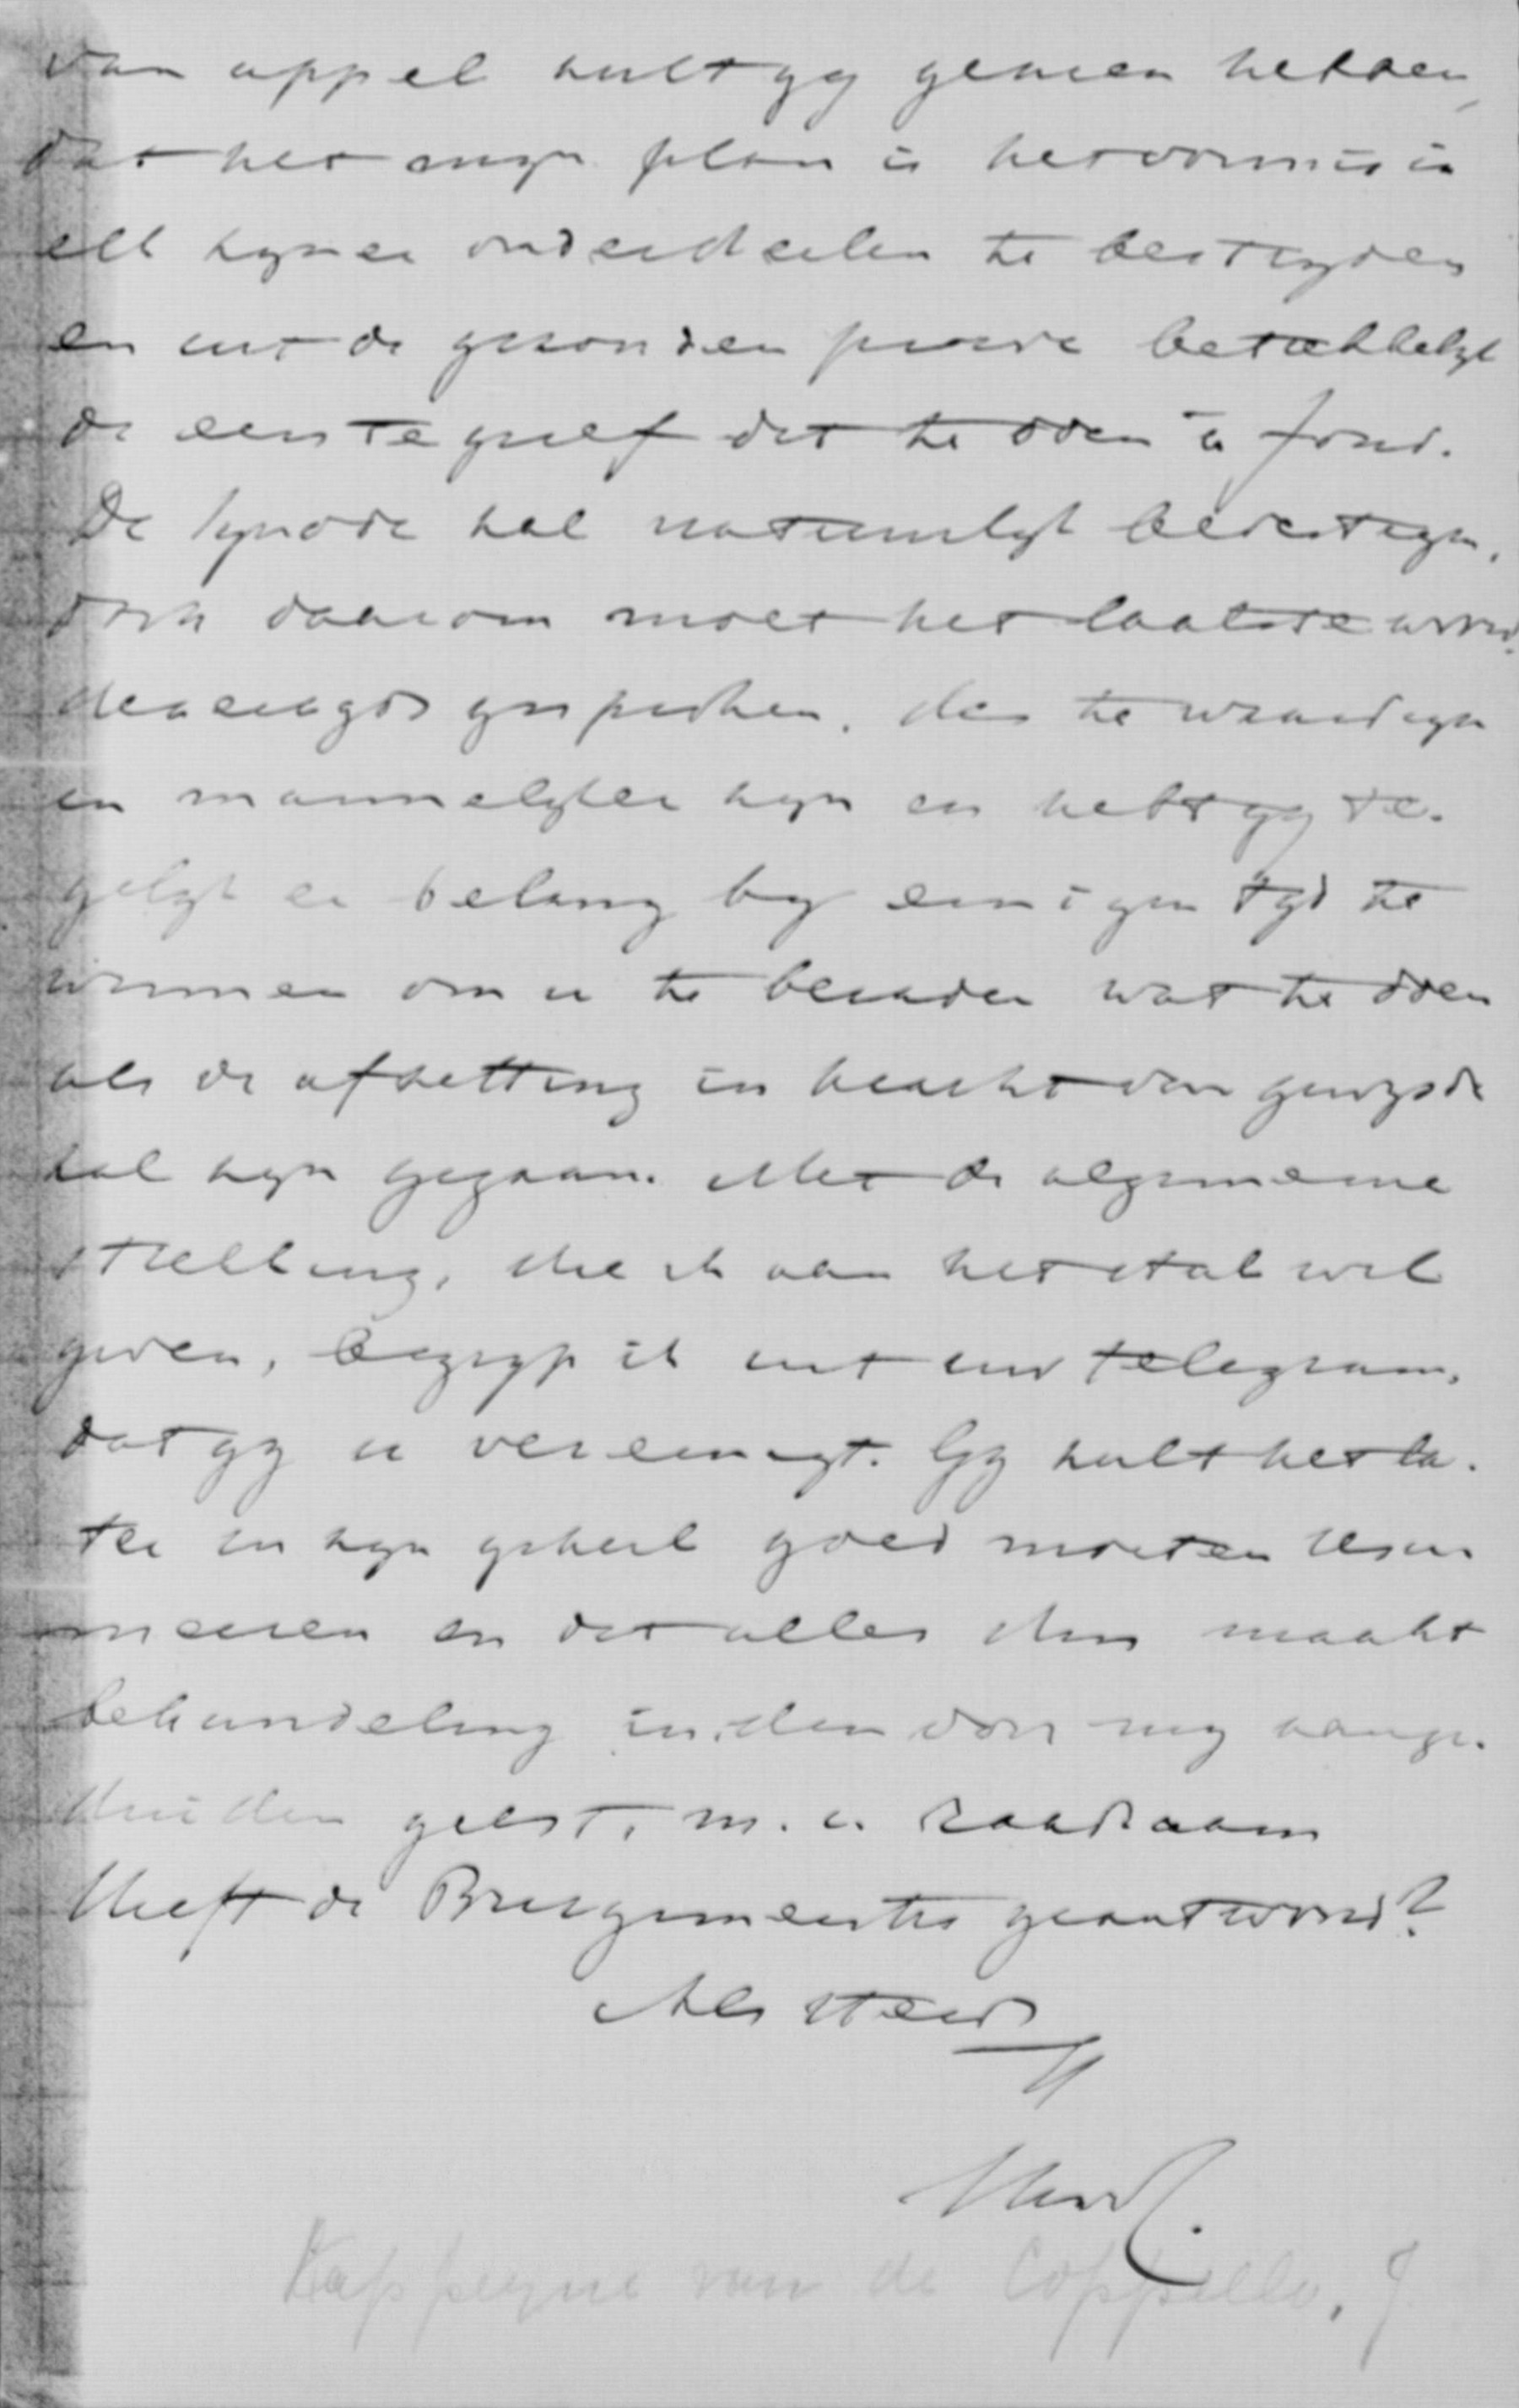 van appel zult gy gezien hebben,
dat het myn plan is het vonnis in
elk zyner onderdeelen te bestryden
en uit de gezonden preuve betrekkelyk
de eerste grief dit te doen à fond.
De Synode zal natuurlyk bevestigen,
doch daarom moet het laatste woord,
harerzyds gesproken, des te waardiger
en mannelyker zyn en hebt gy te-
gelyk er belang by eenigen tyd te
winnen om u te beraden wat te doen
als de afzetting in kracht van gewysde
zal zyn gegaan. Met de algemeene
strekking, die ik aan het stuk wil
geven, begryp ik uit uw telegram,
dat gy u vereenigt. Gy zult het la-
ter in zyn geheel goed moeten
en dat alles dus maakt
behandeling in den door my aange-
duiden geest, m. i. raadzaam
Heeft de Burgemeester geantwoord?
Als steeds
Kappeyne van de Coppello, J